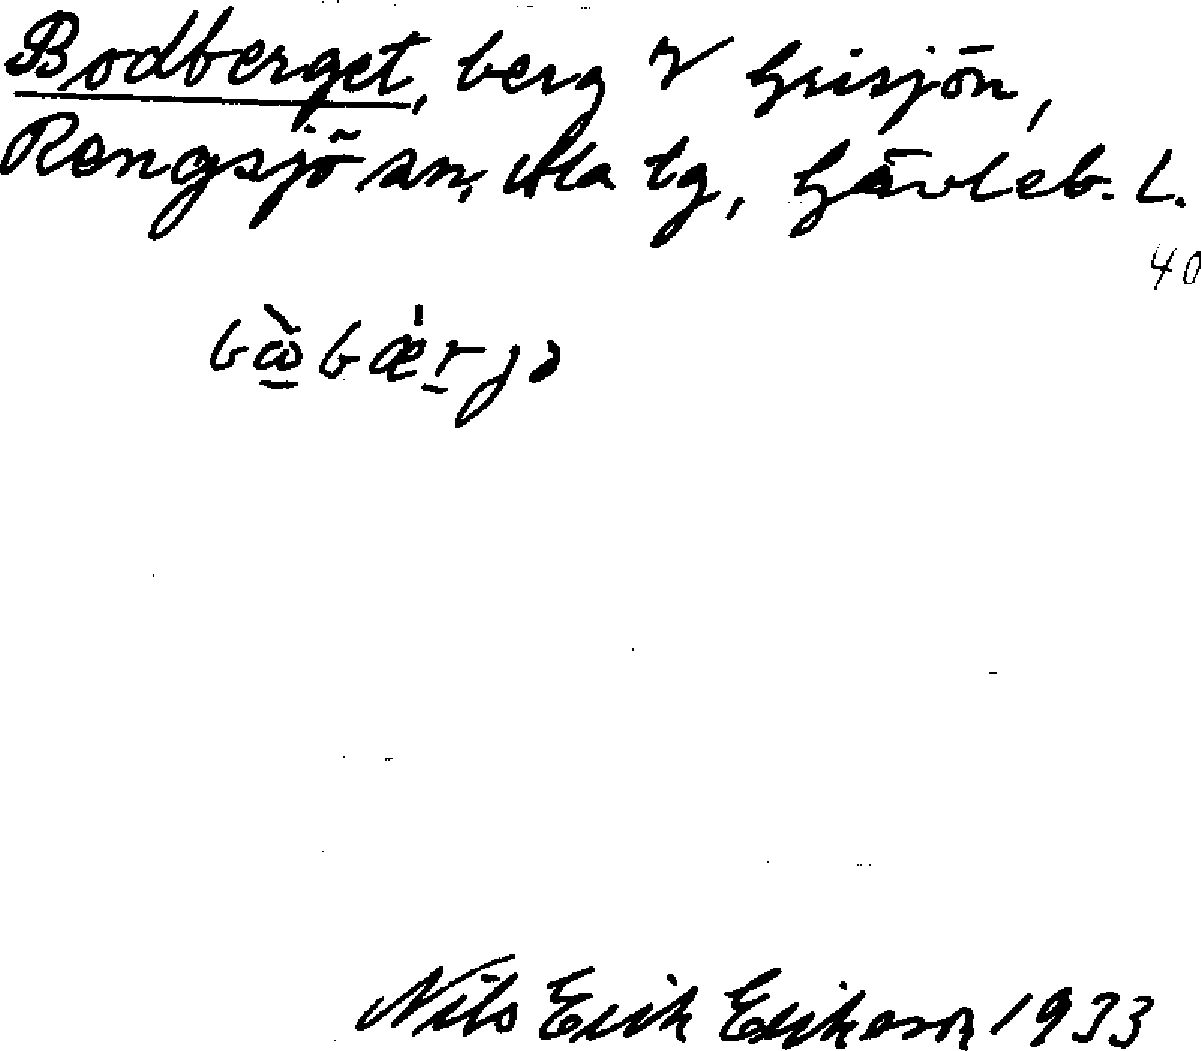 Bodberget, berg V Grisjön,
Rengsjö sn, Ala tg, Gävleb. l.
40
bὼbǽrjə
Nils Erik Erikson 1933